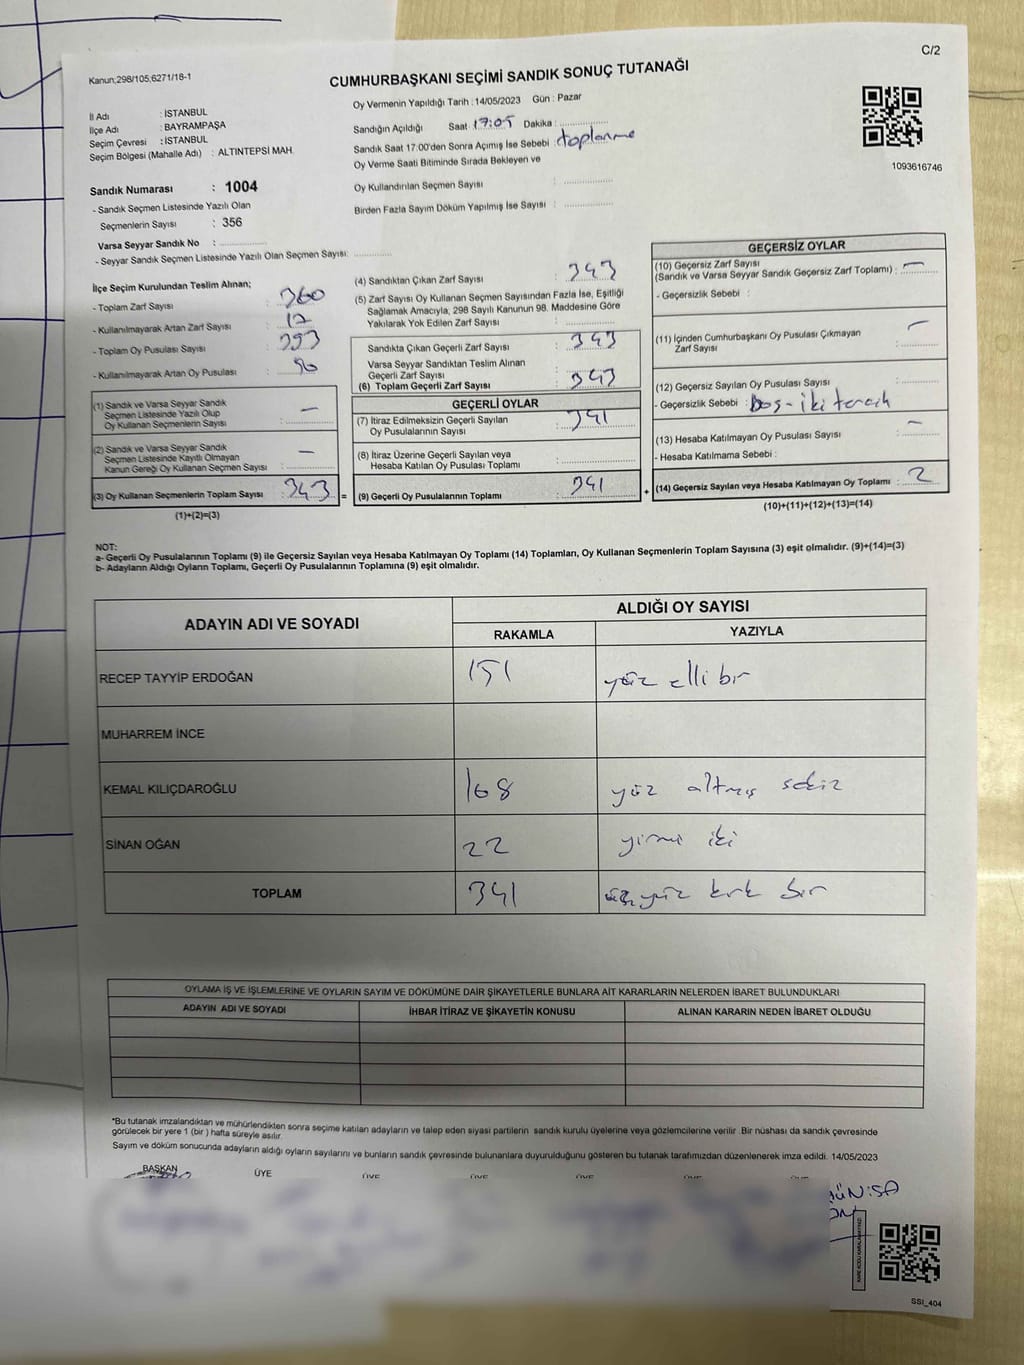 C/2
Kanun;298/105;6271/18-1
CUMHURBAŞKANI SEÇİMİ SANDIK SONUÇ TUTANAĞI
İl Adı : İSTANBUL
İlçe Adı : BAYRAMPAŞA
Seçim Çevresi : İSTANBUL
Seçim Bölgesi (Mahalle Adı) : ALTINTEPSİ MAH.
Sandık Numarası : 1004
- Sandık Seçmen Listesinde Yazılı Olan
Seçmenlerin Sayısı : 356
Varsa Seyyar Sandık No :
- Seyyar Sandık Seçmen Listesinde Yazılı Olan Seçmen Sayısı:
Oy Vermenin Yapıldığı Tarih : 14/05/2023 Gün : Pazar
Sandığın Açıldığı Saat 17:05 Dakika :
Sandık Saat 17:00'den Sonra Açımış İse Sebebi : toplanme
Oy Verme Saati Bitiminde Sırada Bekleyen ve
Oy Kullandırılan Seçmen Sayısı :
Birden Fazla Sayım Döküm Yapılmış İse Sayısı :
1093616746
İlçe Seçim Kurulundan Teslim Alınan;
- Toplam Zarf Sayısı : 360
- Kullanılmayarak Artan Zarf Sayısı : 17
- Toplam Oy Pusulası Sayısı : 393
- Kullanılmayarak Artan Oy Pusulası :
(1) Sandık ve Varsa Seyyar Sandık
Seçmen Listesinde Yazılı Olup
Oy Kullanan Seçmenlerin Sayısı : —
(2) Sandık ve Varsa Seyyar Sandık
Seçmen Listesinde Kayıtlı Olmayan
Kanun Gereği Oy Kullanan Seçmen Sayısı : —
(3) Oy Kullanan Seçmenlerin Toplam Sayısı : 343 =
(1)+(2)=(3)
(4) Sandıktan Çıkan Zarf Sayısı : 343
(5) Zarf Sayısı Oy Kullanan Seçmen Sayısından Fazla İse, Eşitliği
Sağlamak Amacıyla, 298 Sayılı Kanunun 98. Maddesine Göre
Yakılarak Yok Edilen Zarf Sayısı :
Sandıkta Çıkan Geçerli Zarf Sayısı : 343
Varsa Seyyar Sandıktan Teslim Alınan
Geçerli Zarf Sayısı :
(6) Toplam Geçerli Zarf Sayısı : 343
GEÇERLİ OYLAR
(7) İtiraz Edilmeksizin Geçerli Sayılan
Oy Pusulalarının Sayısı : 341
(8) İtiraz Üzerine Geçerli Sayılan veya
Hesaba Katılan Oy Pusulası Toplamı :
(9) Geçerli Oy Pusulalarının Toplamı : 341 +
GEÇERSİZ OYLAR
(10) Geçersiz Zarf Sayısı
(Sandık ve Varsa Seyyar Sandık Geçersiz Zarf Toplamı) : —
- Geçersizlik Sebebi :
(11) İçinden Cumhurbaşkanı Oy Pusulası Çıkmayan
Zarf Sayısı : —
(12) Geçersiz Sayılan Oy Pusulası Sayısı :
- Geçersizlik Sebebi : boş - iki tercih
(13) Hesaba Katılmayan Oy Pusulası Sayısı : —
- Hesaba Katılmama Sebebi :
(14) Geçersiz Sayılan veya Hesaba Katılmayan Oy Toplamı : 2
(10)+(11)+(12)+(13)=(14)
NOT:
a- Geçerli Oy Pusulalarının Toplamı (9) ile Geçersiz Sayılan veya Hesaba Katılmayan Oy Toplamı (14) Toplamları, Oy Kullanan Seçmenlerin Toplam Sayısına (3) eşit olmalıdır. (9)+(14)=(3)
b- Adayların Aldığı Oyların Toplamı, Geçerli Oy Pusulalarının Toplamına (9) eşit olmalıdır.
ADAYIN ADI VE SOYADI
ALDIĞI OY SAYISI
RAKAMLA YAZIYLA
RECEP TAYYİP ERDOĞAN 151 yüz elli bir
MUHARREM İNCE
KEMAL KILIÇDAROĞLU 168 yüz altmış sekiz
SİNAN OĞAN 22 yirmi iki
TOPLAM 341 üçyüz kırk bir
OYLAMA İŞ VE İŞLEMLERİNE VE OYLARIN SAYIM VE DÖKÜMÜNE DAİR ŞİKAYETLERLE BUNLARA AİT KARARLARIN NELERDEN İBARET BULUNDUKLARI
ADAYIN ADI VE SOYADI İHBAR İTİRAZ VE ŞİKAYETİN KONUSU ALINAN KARARIN NEDEN İBARET OLDUĞU
*Bu tutanak imzalandıktan ve mühürlendikten sonra seçime katılan adayların ve talep eden siyasi partilerin sandık kurulu üyelerine veya gözlemcilerine verilir .Bir nüshası da sandık çevresinde
görülecek bir yere 1 (bir ) hafta süreyle asılır.
Sayım ve döküm sonucunda adayların aldığı oyların sayılarını ve bunların sandık çevresinde bulunanlara duyurulduğunu gösteren bu tutanak tarafımızdan düzenlenerek imza edildi. 14/05/2023
BAŞKAN ÜYE ÜYE ÜYE ÜYE ÜYE ÜYE
SSİ_404